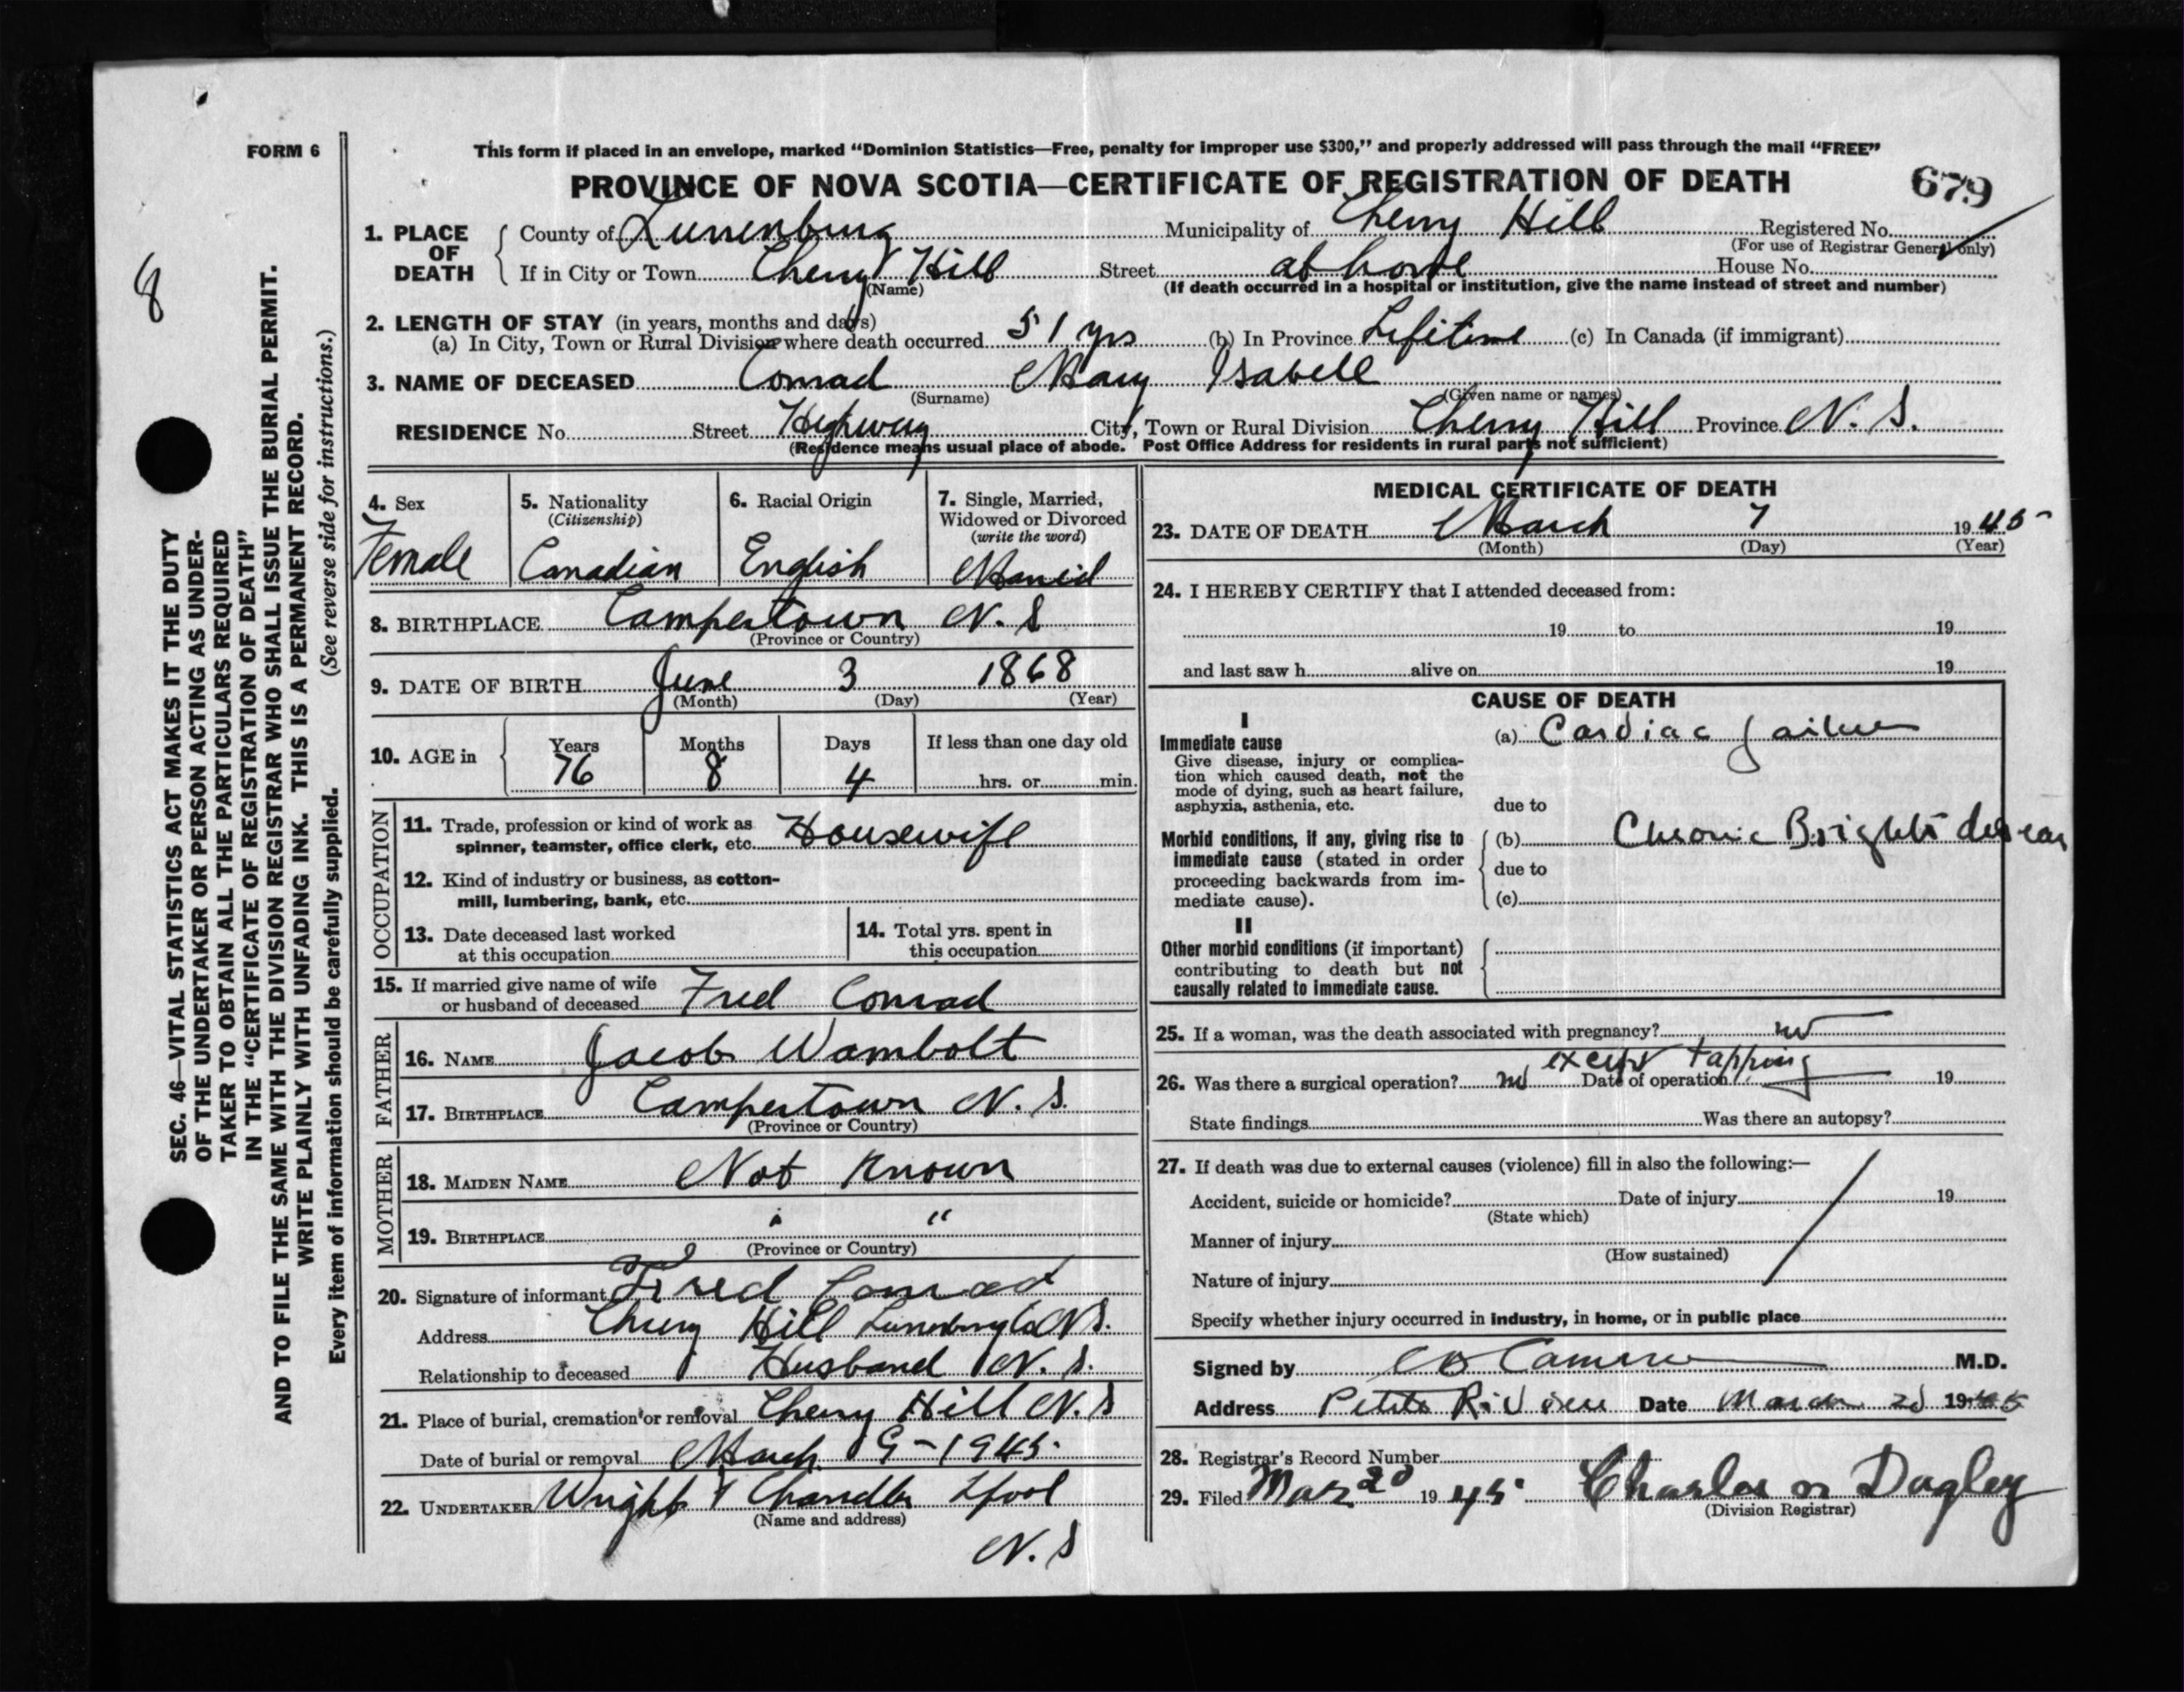 FORM 6
This form if placed in an envelope, marked “Dominion Statistics—Free, penalty for improper use $300,” and properly addressed will pass through the mail “FREE”
PROVINCE OF NOVA SCOTIA—CERTIFICATE OF REGISTRATION OF DEATH
679
8
SEC. 46—VITAL STATISTICS ACT MAKES IT THE DUTY
OF THE UNDERTAKER OR PERSON ACTING AS UNDER-
TAKER TO OBTAIN ALL THE PARTICULARS REQUIRED
IN THE “CERTIFICATE OF REGISTRATION OF DEATH”
AND TO FILE THE SAME WITH THE DIVISION REGISTRAR WHO SHALL ISSUE THE BURIAL PERMIT.
WRITE PLAINLY WITH UNFADING INK. THIS IS A PERMANENT RECORD.
Every item of information should be carefully supplied. (See reverse side for instructions.)
1. PLACE OF DEATH
County of Lunenburg Municipality of Cherry Hill Registered No.
(For use of Registrar General only)
If in City or Town Cherry Hill Street at home House No.
(Name) (If death occurred in a hospital or institution, give the name instead of street and number)
2. LENGTH OF STAY (in years, months and days)
(a) In City, Town or Rural Division where death occurred 51 yrs (b) In Province Lifetime (c) In Canada (if immigrant)
3. NAME OF DECEASED Conrad Mary Isabell
(Surname) (Given name or names)
RESIDENCE No. Street Highway City, Town or Rural Division Cherry Hill Province N. S.
(Residence means usual place of abode. Post Office Address for residents in rural parts not sufficient)
4. Sex
Female
5. Nationality
(Citizenship)
Canadian
6. Racial Origin
English
7. Single, Married,
Widowed or Divorced
(write the word)
8. BIRTHPLACE Campertown N. S
(Province or Country)
9. DATE OF BIRTH June 3 1868
(Month) (Day) (Year)
10. AGE in
Years Months Days If less than one day old
76 8 4 hrs. or min.
OCCUPATION
11. Trade, profession or kind of work as
spinner, teamster, office clerk, etc. Housewife
12. Kind of industry or business, as cotton-
mill, lumbering, bank, etc.
13. Date deceased last worked
at this occupation
14. Total yrs. spent in
this occupation
15. If married give name of wife
or husband of deceased Fred Conrad
FATHER
16. NAME Jacob Wambolt
17. BIRTHPLACE Campertown N. S.
(Province or Country)
MOTHER
18. MAIDEN NAME Not Known
19. BIRTHPLACE " "
(Province or Country)
20. Signature of informant Fred Conrad
Address Cherry Hill Lunenburg Co N.S.
Relationship to deceased Husband N. S.
21. Place of burial, cremation or removal Cherry Hill N. S
Date of burial or removal March 9-1945.
22. UNDERTAKER Wright & Chandler Lpool
(Name and address)
N. S
MEDICAL CERTIFICATE OF DEATH
23. DATE OF DEATH March 7 1945
(Month) (Day) (Year)
24. I HEREBY CERTIFY that I attended deceased from:
19 to 19
and last saw h alive on 19
CAUSE OF DEATH
I
Immediate cause
Give disease, injury or complica-
tion which caused death, not the
mode of dying, such as heart failure,
asphyxia, asthenia, etc.
(a) Cardiac failure
due to
Morbid conditions, if any, giving rise to
immediate cause (stated in order
proceeding backwards from im-
mediate cause).
(b) Chronic Brights diseas
due to
(c)
II
Other morbid conditions (if important)
contributing to death but not
causally related to immediate cause.
25. If a woman, was the death associated with pregnancy? no
except tapping
26. Was there a surgical operation? no Date of operation 19
State findings Was there an autopsy?
27. If death was due to external causes (violence) fill in also the following:—
Accident, suicide or homicide? Date of injury 19
(State which)
Manner of injury
(How sustained)
Nature of injury
Specify whether injury occurred in industry, in home, or in public place
Signed by Cameron M.D.
Address Petite Riviere Date March 20 1945
28. Registrar's Record Number
29. Filed Mar 20 1945 Charles Dagley
(Division Registrar)